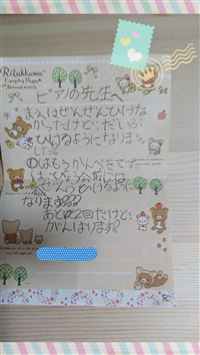 Rilakkuma
ピアノの先生へ
まえはぜんぜんひけな
かったけど、だいぶ
ひけるようになりま
した。
①はもうかんぺきです
は、ひょう会には
ぜんぶひけるように
なります???
あと2回だけど、
がんばります?